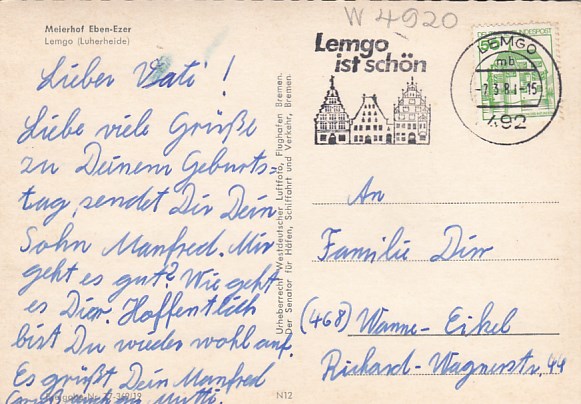 Meierhof Eben-Ezer
Lemgo (Luherheide)
Lieber Vati!
Liebe viele Grüße
zu Deinem Geburts=
tag, sendet Dir Dein
Sohn Manfred. Mir
geht es gut? Wie geht
es Dir. Hoffentlich
bist Du wieder wohl auf.
Es grüßt Dein Manfred
auch an Mutti.
N12
Urheberrecht Westdeutscher Luftfoto, Flughafen Bremen.
Der Senator für Häfen, Schiffahrt und Verkehr, Bremen
W 4920
Lemgo
ist schön
LEMGO
mb
-15
492
50
BUNDESPOST
An
Familie
(468) Wanne-Eikel
Richard-Wagnerstr. 44